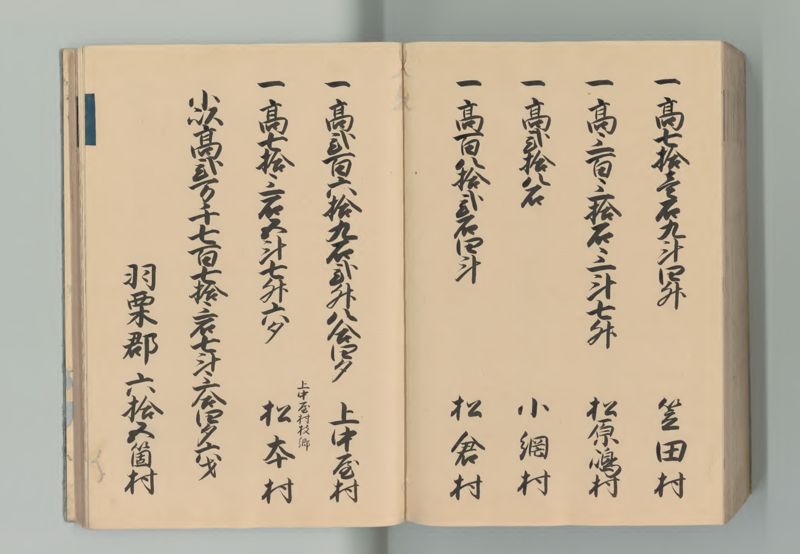 一高七拾壱石九斗四升 笠田村
一高三百三拾石三斗七升 松原嶋村
一高弐拾八石 小網村
一高百八拾弐石四斗 松倉村
一高弐百六拾九石弐升八合四夕 上中屋村
一高七拾三石五斗七升六夕 上中屋村枝郷 松本村
小以高弐万千七百七拾三石七斗三合四夕六才
羽栗郡 六拾五箇村